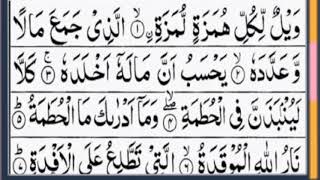 وَيْلٌ لِّكُلِّ هُمَزَةٍ لُّمَزَةِۙ ﴿۱﴾ الَّذِیْ جَمَعَ مَالًا
وَّعَدَّدَهٗ ﴿۲﴾ یَحْسَبُ اَنَّ مَالَهٗۤ اَخْلَدَهٗ ﴿۳﴾ کَلَّا
لَیُنْۢبَذَنَّ فِی الْحُطَمَةِ ﴿۴﴾ وَمَاۤ اَدْرٰىكَ مَا الْحُطَمَةُ ﴿۵﴾
نَارُ اللّٰهِ الْمُوْقَدَةُ ﴿۶﴾ الَّتِیْ تَطَّلِعُ عَلَی الْاَفْـِٕدَةِ ﴿۷﴾